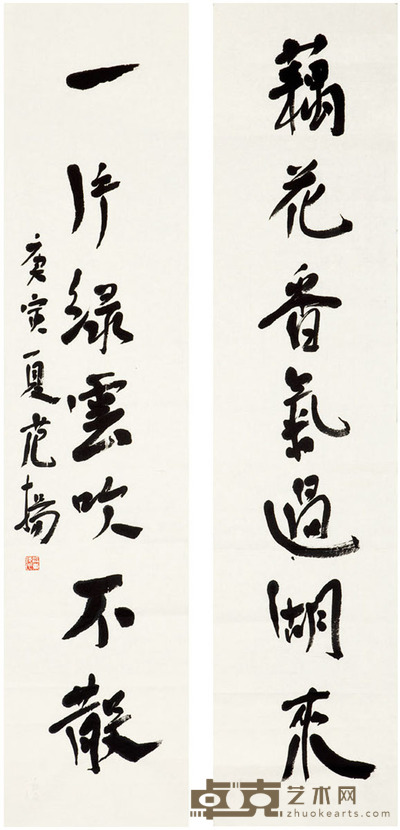 藕花香氣過湖來
一片綠雲吹不散
庚寅夏范揚
卓克艺术网
zhuokearts.com